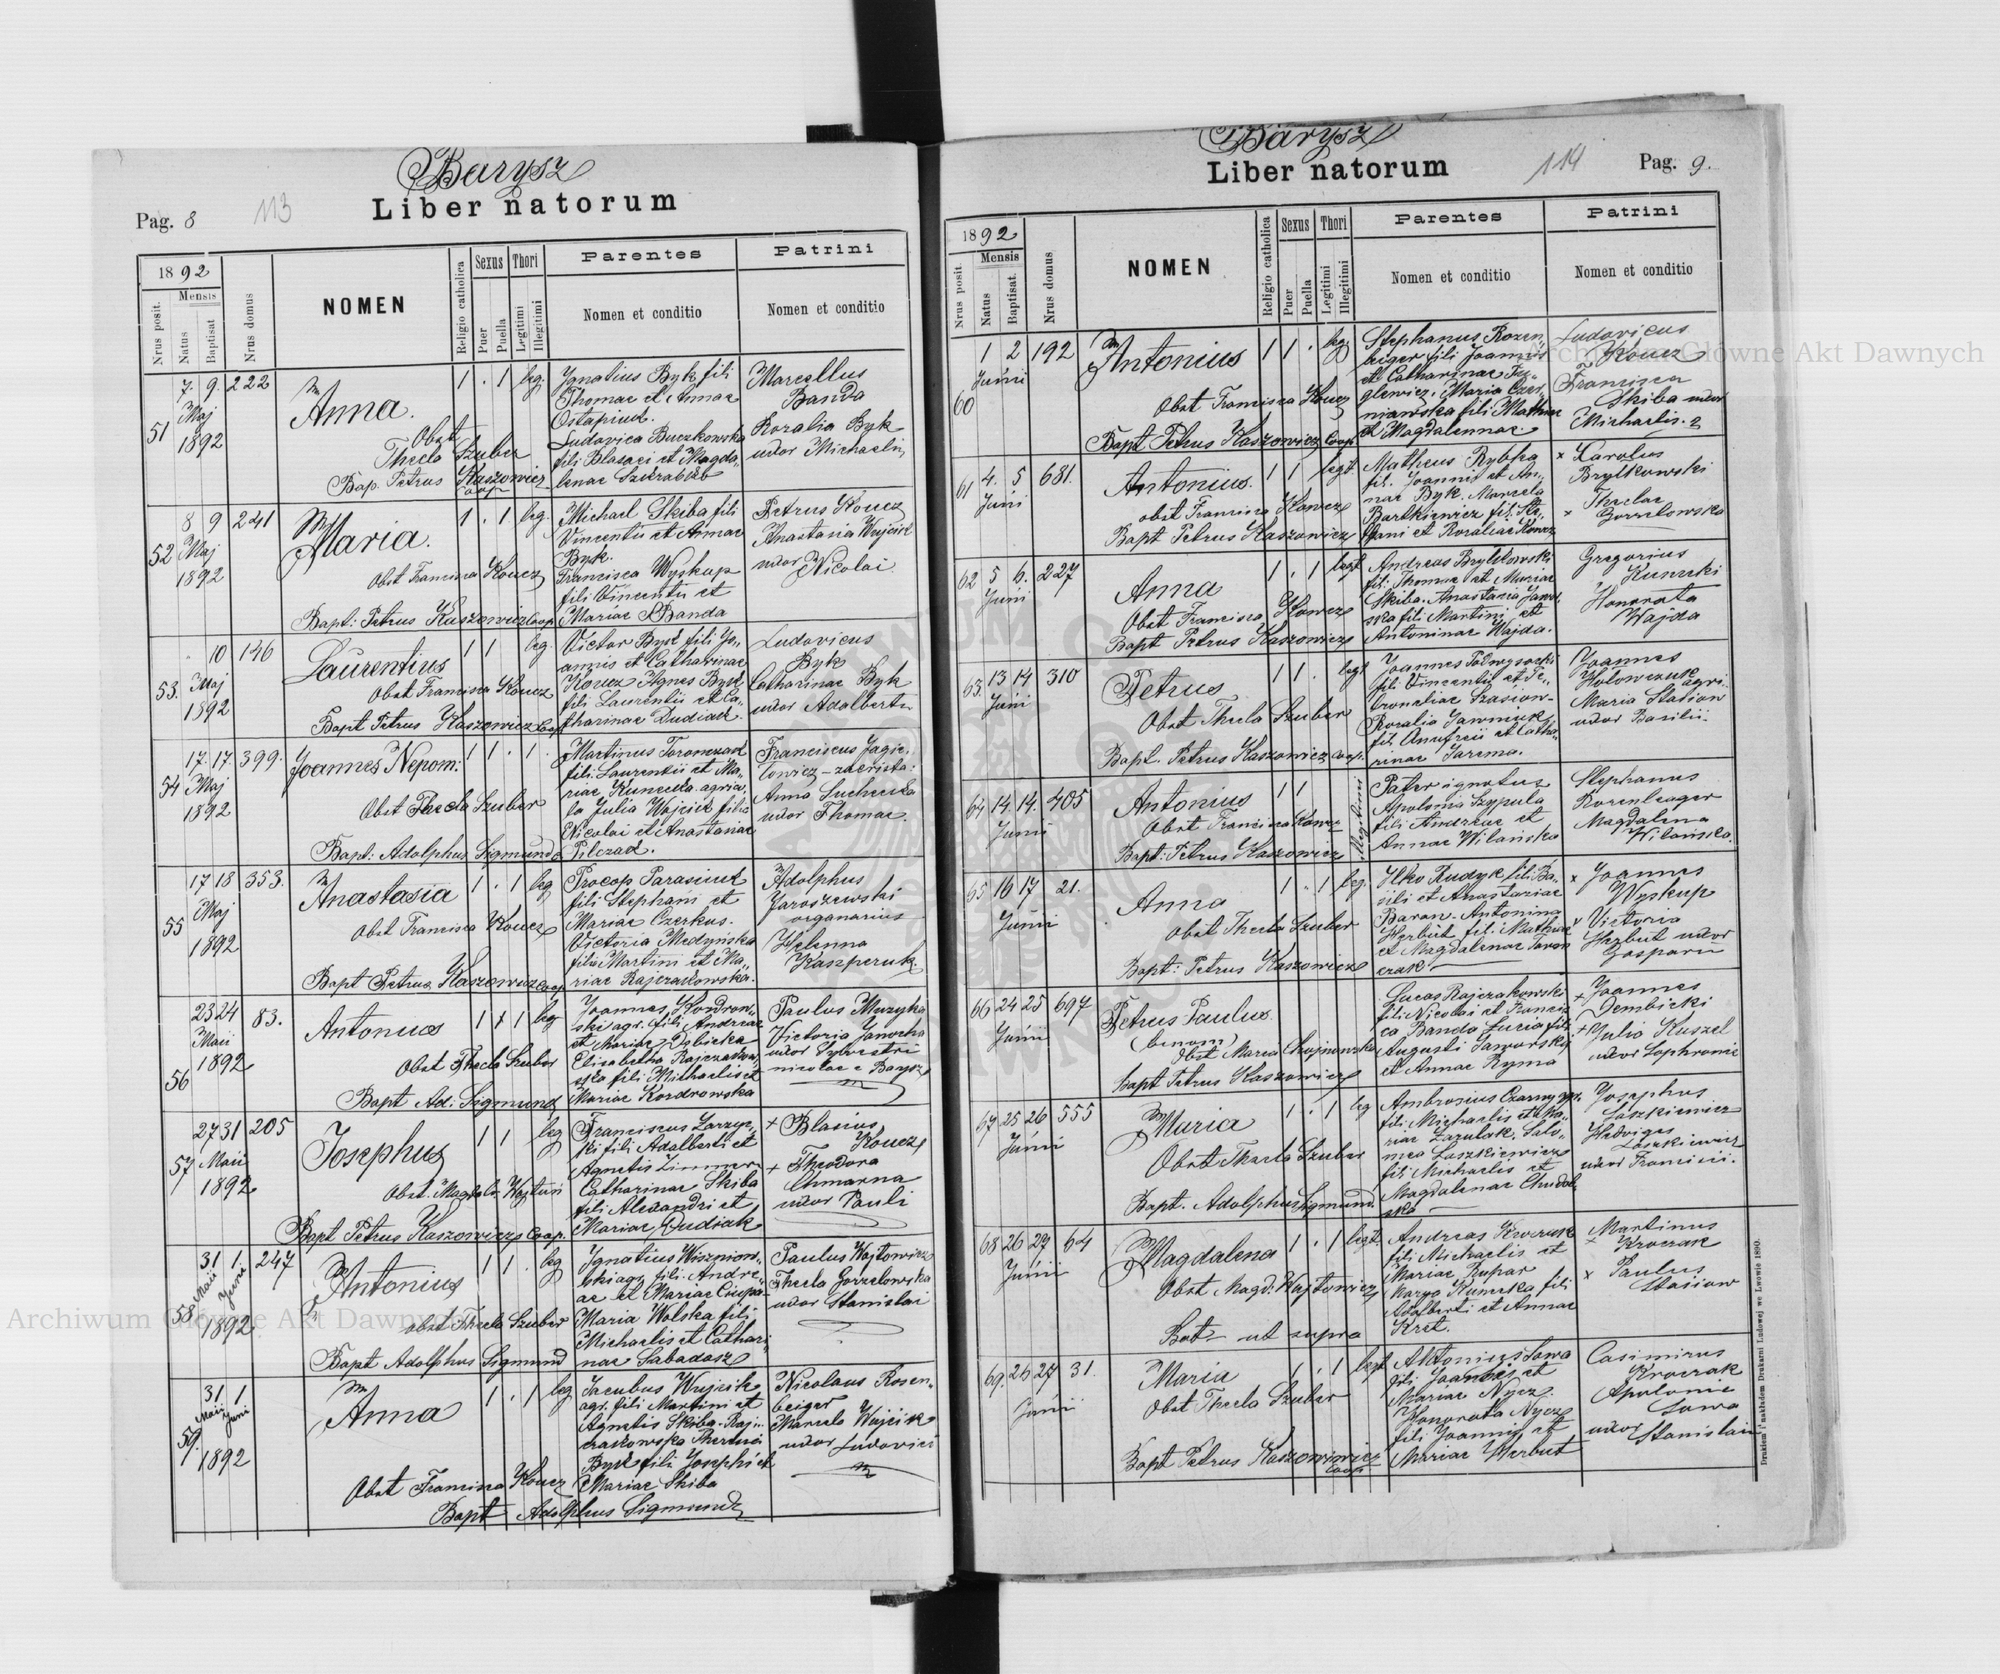 Barysz
Liber natorum
Pag. 8
113
1892
Mensis
Nrus posit.
Natus
Baptisat
Nrus domus
NOMEN
Religio catholica
Sexus
Puer
Puella
Thori
Legitimi
Illegitimi
Parentes
Nomen et conditio
Patrini
Nomen et conditio
51
7. 9. 222
Maj
1892
Anna.
Obst
Thecla Szuber
Bap. Petrus Kaszowicz
coop
1 . 1 leg.
Ignatius Byk fili
Thomae et Annae
Ostapiuk.
Ludovica Buczkowska
fili Blasaei et Magda„
lenae
Marcellus
Banda
Rozalia Byk
uxor Michaelis
52
8 9 241
Maj
1892
Maria.
Obst Francisca Koucz
Bapt: Petrus Kaszowicz Coop
1 . 1 leg.
Michael Skiba fili
Vincentii et Annae
Byk.
Francisca Wyskup
fili Vincentii et
Mariae Banda
Petrus Koucz
Anastasia Wujcik
uxor Nicolai
53.
10 146
Maj
1892
Laurentius
Obst Francisca Koucz
Bapt Petrus Kaszowicz Coop
1 1 leg.
Victor Byk fili Jo„
annis et Catharinae
Koucz Agnes Byk
fili Laurentii et Ca„
tharinae Dudiak
Ludovicus
Byk
Catharinae Byk
uxor Adalberti
54
17. 17. 399.
Maj
1892
Joannes Nepom:
Obst Thecla Szuber
Bapt: Adolphus Sigmund
1 1 . 1 .
Martinus Taronczak
fili Laurentii et Ma„
riae Kunecka agrico„
la Julia Wojcik filia
Nicolai et Anastasiae
Pilczak.
Franciscus Jagie„
lowicz – zacrista:
Anna Suchecka
uxor Thomae.
55
17 18 353.
Maj
1892
Anastasia
Obst Francisca Koucz
Bapt Petrus Kaszowicz Coop
1 . 1 leg
Procop Parasiuk
fili Stephani et
Mariae Czerkus.
Victoria Medyńska
filia Martini et Ma„
riae Rajczakowska.
Adolphus
Jaroszewski
organarius
Helenna
Kaszperuk.
56
23 24 83.
Maii
1892
Antonius
Obst Thecla Szuber
Bapt Ad: Sigmund
1 1 1 leg
Joannes Kordrow„
ski agr. fili Andreae
et Mariae Dybicka
Elisabetha Rajczakow„
ska fili Michaelis et
Mariae Kordrowska
Paulus Muzyka
Victoria Janocha
uxor Sylvestri
nicolae e Barysz
57
27 31 205
Maii
1892
Josephus
Obst. Magdal. Wojtow
Bapt Petrus Kaszowicz Coop.
1 1 leg
Franciscus Zarzyc„
ki fili Adalberti et
Agnetis Zimmer
Catharinae Skiba
fili Alexandri et
Mariae Dudiak
+ Blasius
Koucz
+ Theodora
Chmarna
uxor Pauli
58
31 1. 247
Maii Junii
1892
Antonius
obst Thecla Szuber
Bapt Adolphus Sigmund
1 1 . leg
Ignatius Wiszniow„
ski agr. fili Andre„
ae et Mariae
Maria Wolska fili
Michaelis et Cathari„
nae Sabadasz
Paulus Wojtowicz
Thecla Gorzelowska
uxor Stanislai
59.
31 1
Maii Juni
1892
Anna
Obst Francisca Koucz
Bapt Adolphus Sigmund
1 . 1 leg
Jacobus Wujcik
agr. fili Martini et
Agnetis Skiba. Raj„
czakowska
Byk fili Josephi et
Mariae Skiba
Nicolaus Rosen„
beiger
Marcela Wujcik
uxor Ludovici
Barysz
Liber natorum
114
Pag. 9.
1892
Mensis
Nrus posit.
Natus
Baptisat.
Nrus domus
NOMEN
Religio catholica
Sexus
Puer
Puella
Thori
Legitimi
Illegitimi
Parentes
Nomen et conditio
Patrini
Nomen et conditio
60
1 2 192
Junii
Antonius
Obst Francisca Koucz
Bapt Petrus Kaszowicz Coop
1 1 . leg
Stephanus Rozen„
beiger fili Joannis
et Catharinae
Maria Czer„
niawska fili Mathiae
et Magdalennae.
Ludovicus
Koucz
Francisca
Skiba uxor
Michaelis.
61
4. 5 681.
Junii
Antonius.
obst Francisca Kowcz
Bapt Petrus Kaszowicz
1 1 legt
Matheus Rybka
fil. Joannis et An„
nae Byk. Marcela
Bartkiewicz fil. Ste„
fani et Rozaliae Kowcz
× Carolus
Brylkowski
× Theclae
Gorzelowska
62
5 6. 227
Junii
Anna
Obst Francisca Kowcz
Bapt Petrus Kaszowicz
1 . 1 legt
Andreas Brylkowski
fili Thomae et Mariae
Skiba. Anastasia Jawor„
ska fili Martini et
Antoninae Wajda.
Gregorius
Kunecki
Honorata
Wajda
63
13 14 310
Junii
Petrus
Obst Thecla Szuber
Bapt. Petrus Kaszowicz Coop.
1 1 . legt
Joannes Podwysocki
fili Vincentii et Pe„
troneliae Stasiow.
Rozalia Jawniuk
fil. Anufreii et Catha„
rinae Jarema.
Joannes
Holowczuk agri
Maria Stasiow
uxor Basilii.
64
14. 14. 405
Junii
Antonius
Obst Francisca Kowcz
Bapt: Petrus Kaszowicz
1 1
Illegitimi
Pater ignotus
Apolonia Szypula
fili Andreae et
Annae Wilańska
Stephanus
Rosenbeager
Magdalena
Wilańska.
65
16 17 21.
Junii
Anna
Obst Thecla Szuber
Bapt: Petrus Kaszowicz
1 . 1 leg.
Ilko Rudyk fili Ba„
sili et Anastaziae
Baran. Antonina
Herbut fili Mathiae
et Magdalenae Taron
czak
× Joannes
Wyskup
× Victoria
Herbut uxor
Gasparii
66
24 25 697
Junii
Petrus Paulus.
(binom)
Obst Maria Chojnowska
bapt Petrus Kaszowicz
Lucas Rajczakowski
fili Nicolai et Francis
ca Banda Lucia fili
Augusti Jaworskij
et Annae Ryma
+ Joannes
Dembicki
+ Julia Kuszel
uxor Sophronii
67
25 26 555
Junii
Maria
Obst Thecla Szuber
Bapt. Adolphus Sigmund.
1 . 1 leg
Ambrosius Czarny agr.
fili Michaelis et Ma„
riae Zazulak. Salo„
mea Laszkiewicz
fili Michaelis et
Magdalenae Chudob„
ska
Josephus
Laszkiewicz
Hedviges
Laszkiewicz
uxor Francisci.
68
26 27 64
Junii
Magdalena
Obst Magd. Wojtowicz
Bat ut supra
1 . 1 legt.
Andreas Kroczak
fili Michaelis et
Mariae Rupar
Marya Kunecka fili
Adalberti et Annae
Kret.
Martinus
Kroczak
× Paulus
Stasiow
69.
26 27 31.
Junii
Maria
Obst Thecla Szuber
Bapt Petrus Kaszowicz
coop
1 . 1 legt
Antonius Sowa
fili Joannis et
Mariae Nycz.
Honorata Nycz
fili Joannis et
Mariae Herbut
Casimirus
Kroczak
Apolonia
Sowa
uxor Stanislai
Drukiem i nakładem Drukarni Ludowej we Lwowie 1890.
Archiwum Główne Akt Dawnych
Archiwum Główne Akt Dawnych